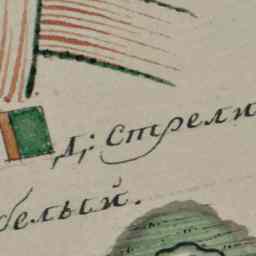 Д: Стрели
белый.